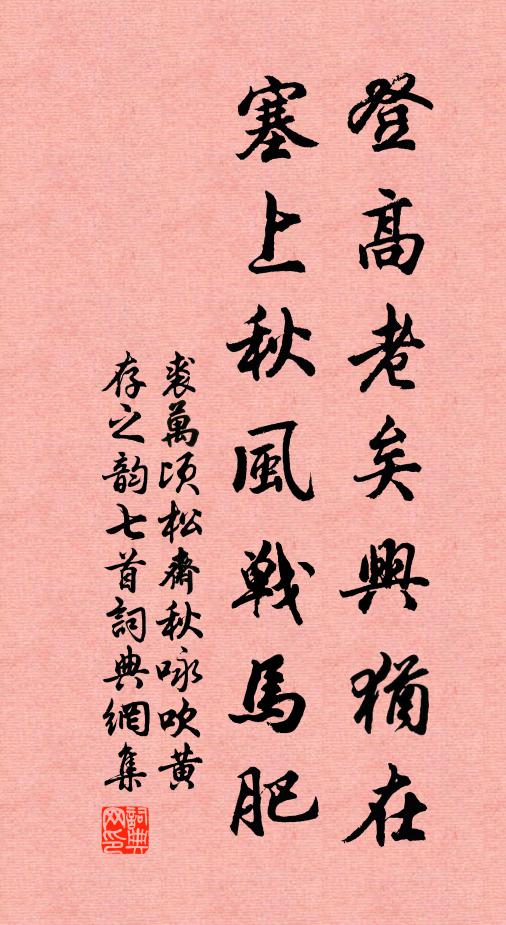 登高老矣興猶在
塞上秋風戰馬肥
裘萬頃松齋秋咏吹黃
存之韵七首詞典網集
詞典网印